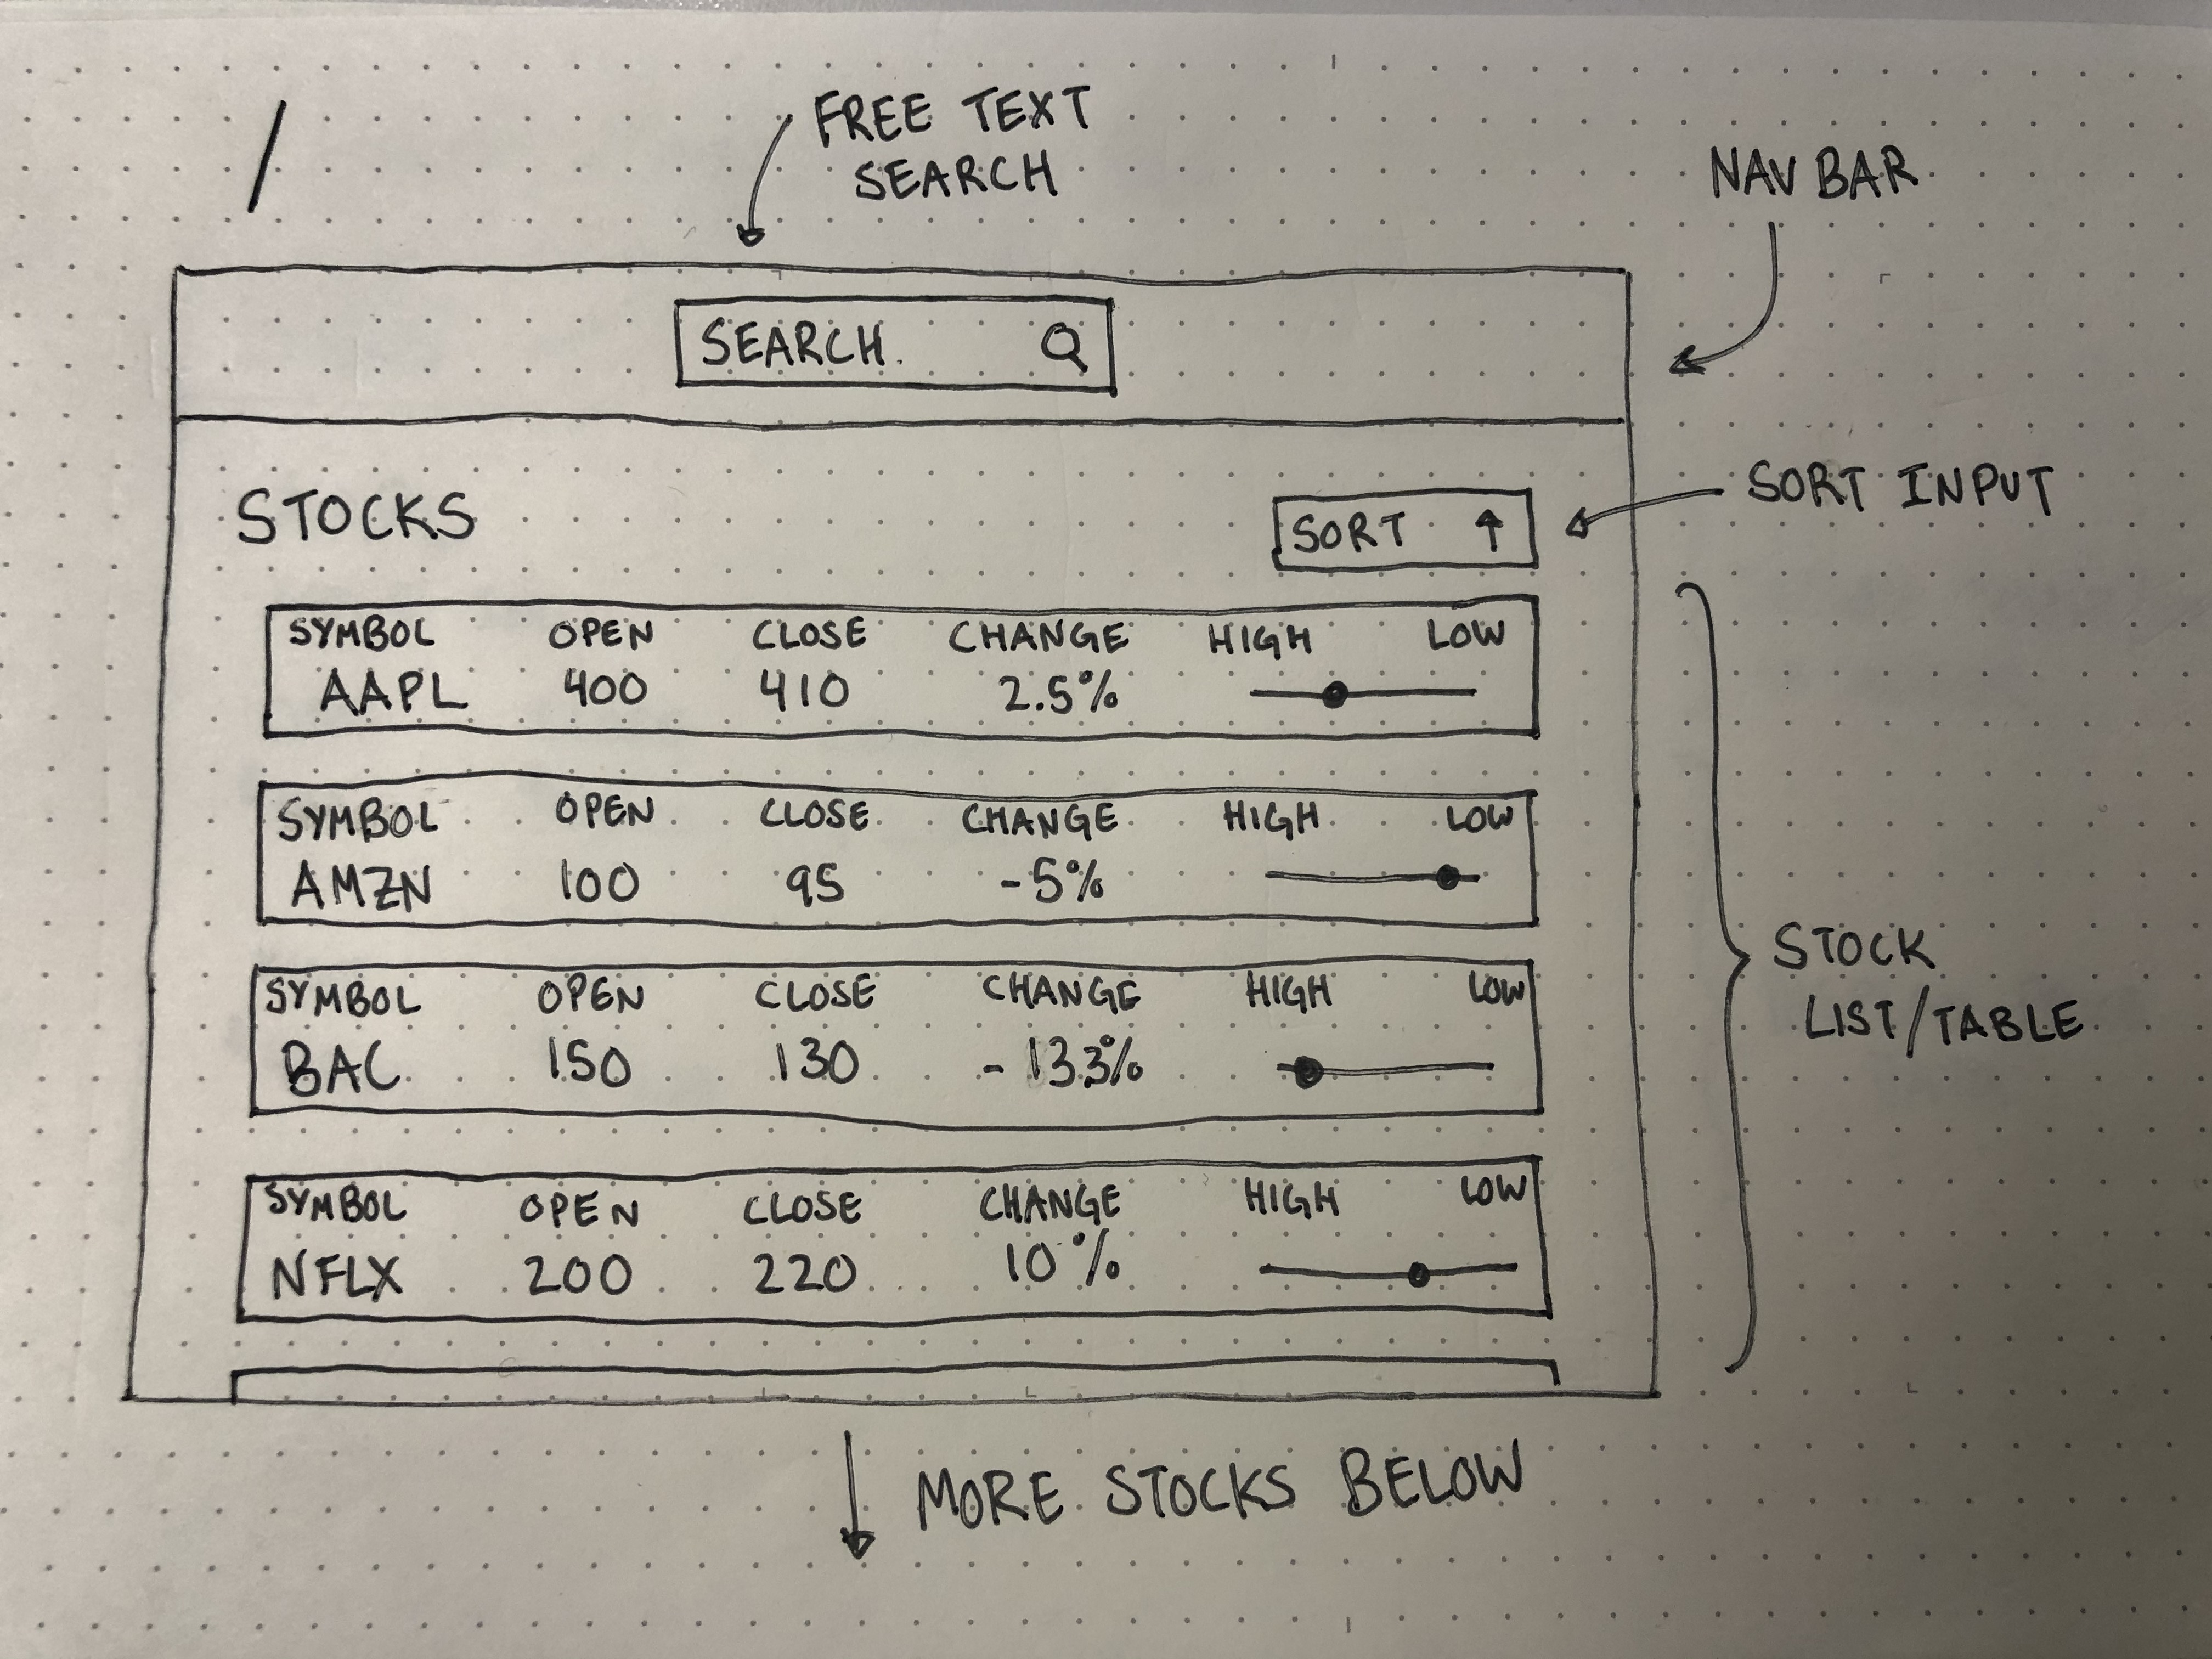 /
FREE TEXT
SEARCH
NAV BAR
SEARCH
STOCKS
SORT ↑
SORT INPUT
SYMBOL OPEN CLOSE CHANGE HIGH LOW
AAPL 400 410 2.5%
SYMBOL OPEN CLOSE CHANGE HIGH LOW
AMZN 100 95 -5%
SYMBOL OPEN CLOSE CHANGE HIGH LOW
BAC 150 130 -13.3%
SYMBOL OPEN CLOSE CHANGE HIGH LOW
NFLX 200 220 10%
STOCK
LIST/TABLE
MORE STOCKS BELOW